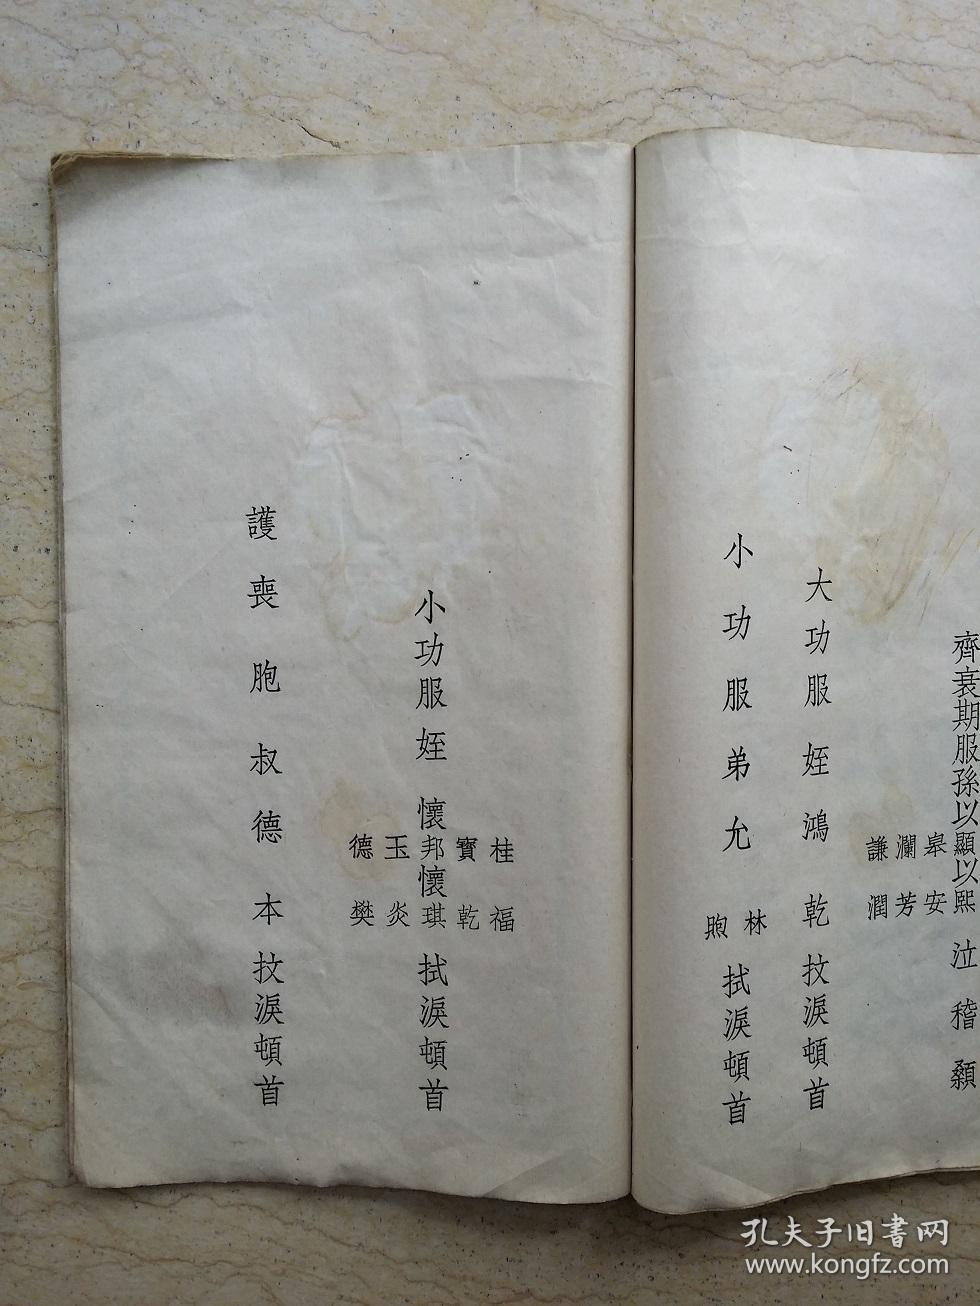 齊衰期服孫以顯以熙泣稽顙
皋安
瀾芳
謙潤
大功服姪鴻乾抆淚頓首
小功服弟允
林
煦
拭淚頓首
桂福
寶乾
小功服姪懷邦懷琪拭淚頓首
玉炎
德樊
護喪胞叔德本抆淚頓首
孔夫子旧书网
www.kongfz.com